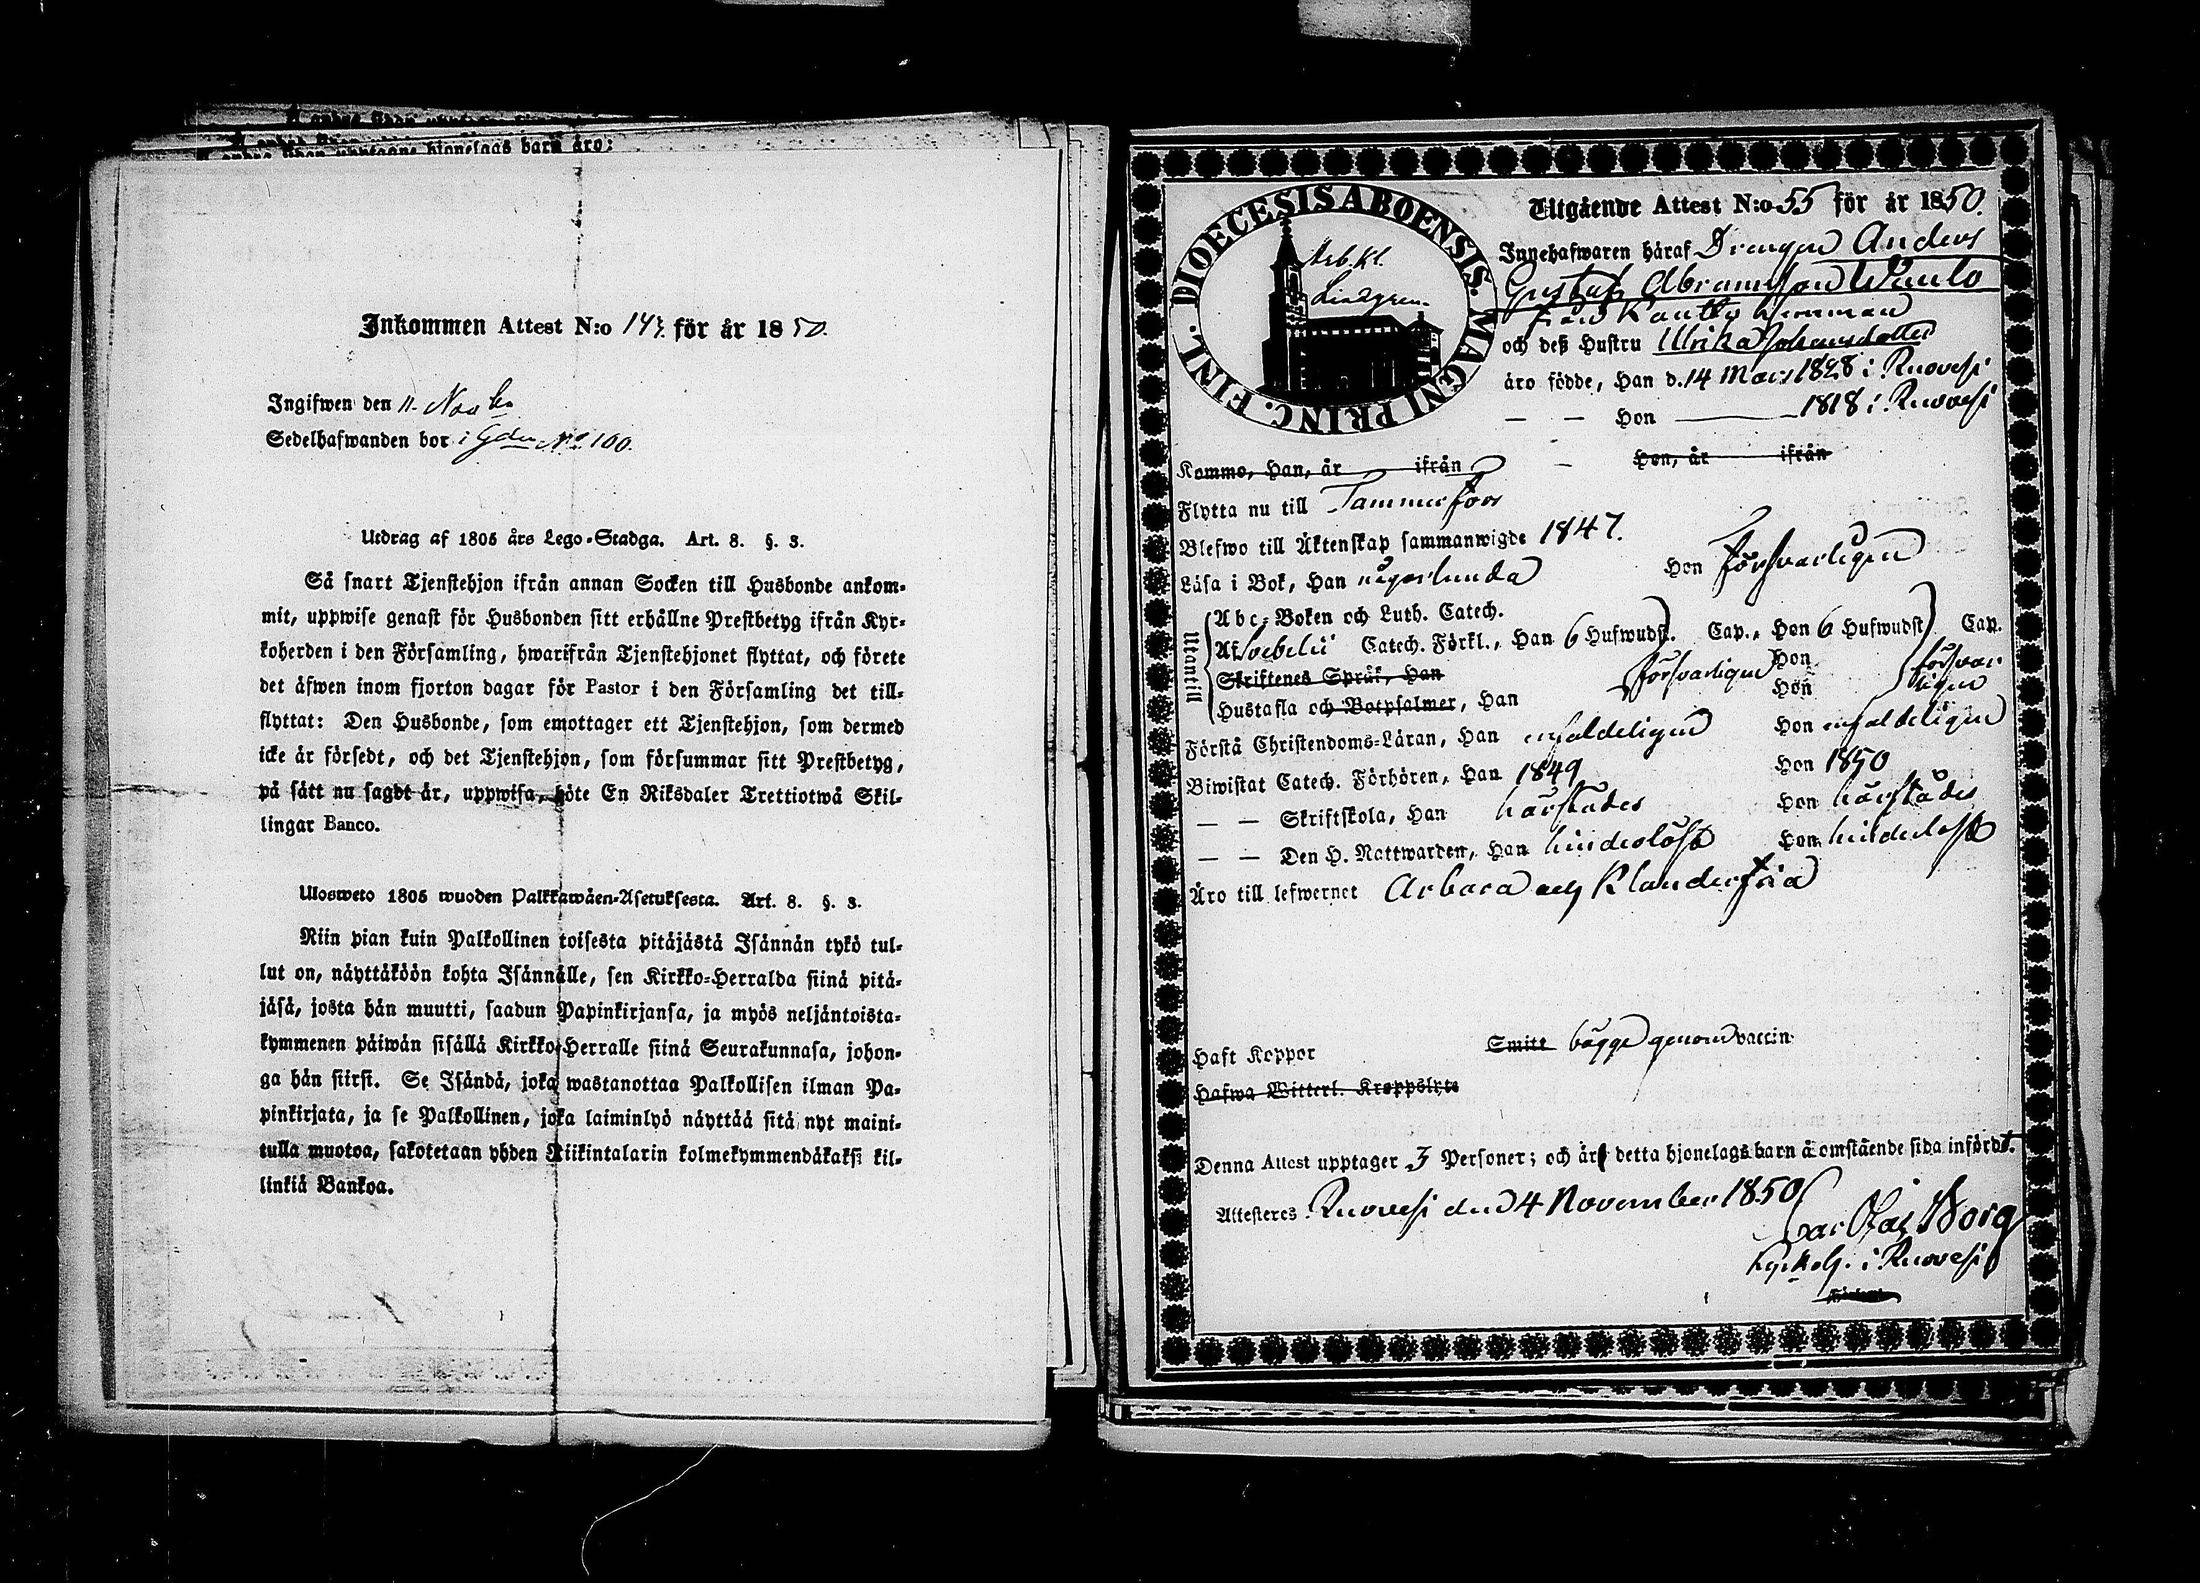 Inkommen Attest N:o 143 för år 1850.
Ingifwen den 11. Novbr
Sedelhafwanden bor i Gden No 100.
Utdrag af 1805 års Lego-Stadga. Art. 8. §. 3.
Så snart Tjenstehjon ifrån annan Socken till Husbonde ankom-
mit, uppwise genast för Husbonden sitt erhållne Prestbetyg ifrån Kyr-
koherden i den Församling, hwarifrån Tjenstehjonet flyttat, och förete
det äfwen inom fjorton dagar för Pastor i den Församling det till-
flyttat: Den Husbonde, som emottager ett Tjenstehjon, som dermed
icke är försedt, och det Tjenstehjon, som försummar sitt Prestbetyg,
på sätt nu sagdt är, uppwisa, böte En Riksdaler Trettiotwå Skil-
lingar Banco.
Ulosweto 1805 wuoden Palkkawäen-Asetuksesta. Art. 8. §. 3.
Niin pian kuin Palkollinen toisesta pitäjästä Isännän tykö tul-
lut on, näyttäköön kohta Isännälle, sen Kirkko-Herralda siinä pitä-
jäsä, josta hän muutti, saadun Papinkirjansa, ja myös neljäntoista-
kymmenen päiwän sisällä Kirkko-Herralle siinä Seurakunnasa, johon-
ga hän siirsi. Se Isändä, joka wastanottaa Palkollisen ilman Pa-
pinkirjata, ja se Palkollinen, joka laiminlyö näyttää sitä nyt maini-
tulla muotoa, sakotetaan yhden Riikintalarin kolmekymmendäkaksi kil-
linkiä Bankoa.
DIOECESIS ABOENSIS. MAGNI PRINC. FINL.
Arb.kl.
Lindgren.
Utgående Attest N:o 55 för år 1850.
Innehafwaren häraf Drengen Anders
Gustaf Abramsson Wanlo
från Kautto hemman
och deß Hustru Ulrika Johansdotter
äro födde, Han d. 14 Mars 1828 i Ruovesi
— — Hon — 1818 i Ruovesi
Komme, Han, år ifrån — Hon, år ifrån
Flytta nu till Tammerfors
Blefwo till Äktenskap sammanwigde 1847.
Läsa i Bok, Han någorlunda Hon försvarligen
Utantill
Abc-Boken och Luth. Catech.
Af Svebelii Catech. Förkl., Han 6 Hufwudst. Cap., Hon 6 Hufwudst Cap.
Skriftenes Språk, Han försvarligen Hon försvar
Hustafla och Botpsalmer, Han Hon ligen
Förstå Christendoms-Läran, Han enfaldeligen Hon enfaldeligen
Biwistat Catech. Förhören, Han 1849 Hon 1850
— — Skriftskola, Han härstädes Hon härstädes
— — Den H. Nattwarden, Han hinderlöst Hon hinderlöst
Äro till lefwernet Ärbara och Klanderfria
Haft Koppor Smitt bägge genom vaccin
Hafwa Witterl. Kroppslyte
Denna Attest upptager 3 Personer; och är detta hjonelags barn å omstående sida infördt.
Attesteres Ruovesi den 4 November 1850
Carl Olof Borg
Kyrkoh. i Ruovesi